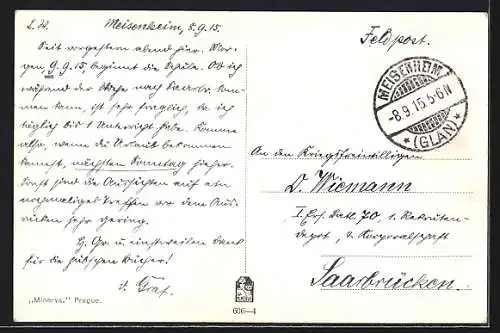 L. W. Meisenheim, 8.9.15.
Seit vorgestern abend hier. Mor-
gen, 9.9.15, beginnt die Schule. Ob ich
während der Woche nach Saarbr. kom-
men kann, ist sehr fraglich, da ich
täglich bis 1 Unterricht habe. Komme
also, wenn du Urlaub bekommen
kannst, nächsten Sonntag hieher.
Sonst sind die Aussichten auf ein
nochmaliges Treffen vor dem Aus-
rücken sehr gering.
H. Gr. u. einstweilen Dank
für die hübschen Bücher!
Graf.
„Minerva," Prague.
606—4
Feldpost.
MEISENHEIM
-8.9.15.5-6N
* (GLAN) *
An den Kriegsfreiwilligen
O. Wiemann
I. Ers. Batl. 70 1. Rekruten-
depot, Korporalschaft
Saarbrücken.